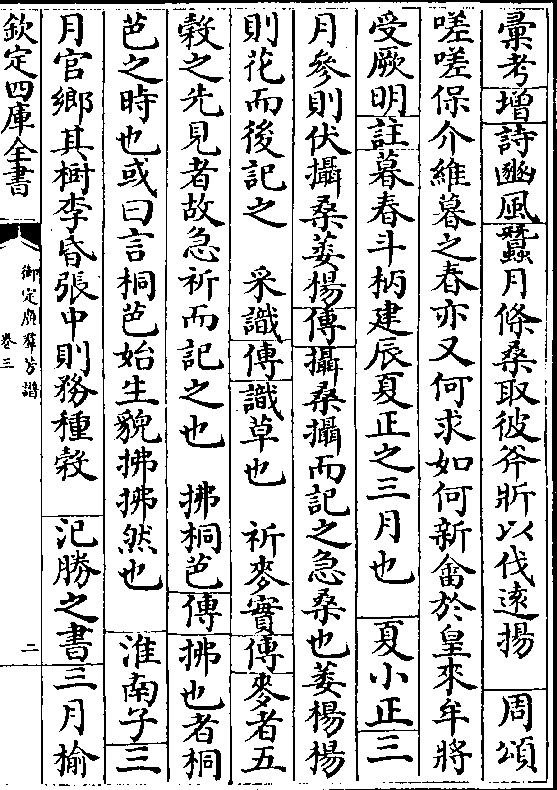 彚考增詩豳風蠶月條桑取彼斧斨以伐遠揚　周頌
嗟嗟保介維暮之春亦又何求如何新畬於皇來牟將
受厥明註暮春斗柄建辰夏正之三月也　夏小正三
月參則伏攝桑萎楊傳攝桑攝而記之急桑也萎楊楊
則花而後記之　采識傳識草也　祈麥實傳麥者五
榖之先見者故急祈而記之也　拂桐芭傳拂也者桐
芭之時也或曰言桐芭始生貌拂拂然也　淮南子三
月官鄉其樹李昏張中則務種榖　汜勝之書三月榆
欽定四庫全書
御定廣羣芳譜
卷三
二